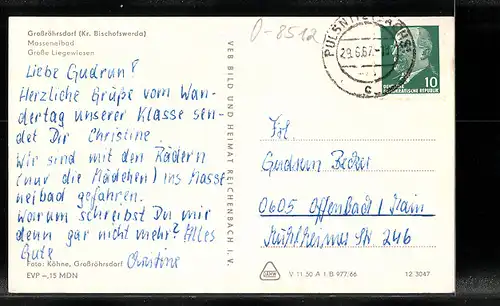 Großröhrsdorf (Kr. Bischofswerda)
Masseneibad
Große Liegewiesen
Liebe Gudrun!
Herzliche Grüße vom Wan-
dertag unserer Klasse sen-
det Dir Christine.
Wir sind mit den Rädern
(nur die Mädchen) ins Masse
neibad gefahren.
Warum schreibst Du mir
denn gar nicht mehr? Alles
Gute
Christine
Foto: Köhne, Großröhrsdorf
EVP –,15 MDN
VEB BILD UND HEIMAT REICHENBACH I. V.
0-8512
PULSNITZ (SACHS)
29.6.67
c
10
DEUTSCHE
DEMOKRATISCHE REPUBLIK
Frl.
Gudrun Becker
0605 Offenbach/Main
Mühlheimer Str 246
V 11 50 A 1 B 977/66
12 3047